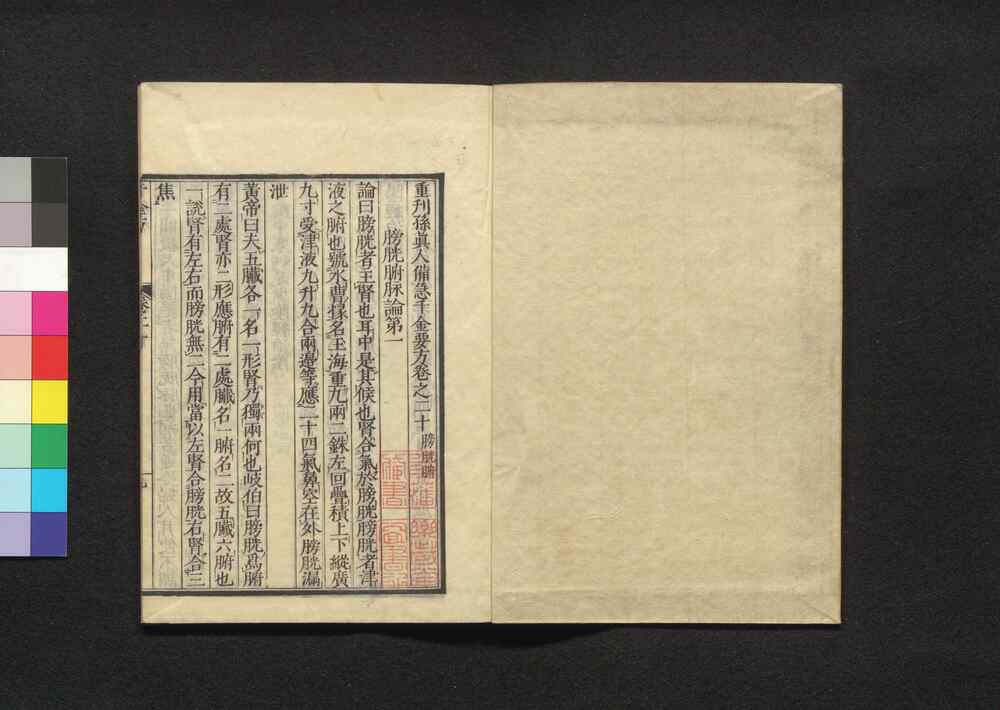 重刋孫眞人備急千金要方卷之二十 膀胱腑
膀胱腑脉論第一
論曰膀胱者主腎也耳中是其候也腎合氣於膀胱膀胱者津
液之腑也號水曹掾名玉海重九兩二銖左回疊積上下縱廣
九寸受津液九升九合兩邊等應二十四氣鼻空在外膀胱漏
泄
黃帝曰夫五臟各一名一形腎乃獨兩何也岐伯曰膀胱爲腑
有二處腎亦二形應腑有二處臟名一腑名二故五臟六腑也
一說腎有左右而膀胱無二今用當以左腎合膀胱右腎合三
焦